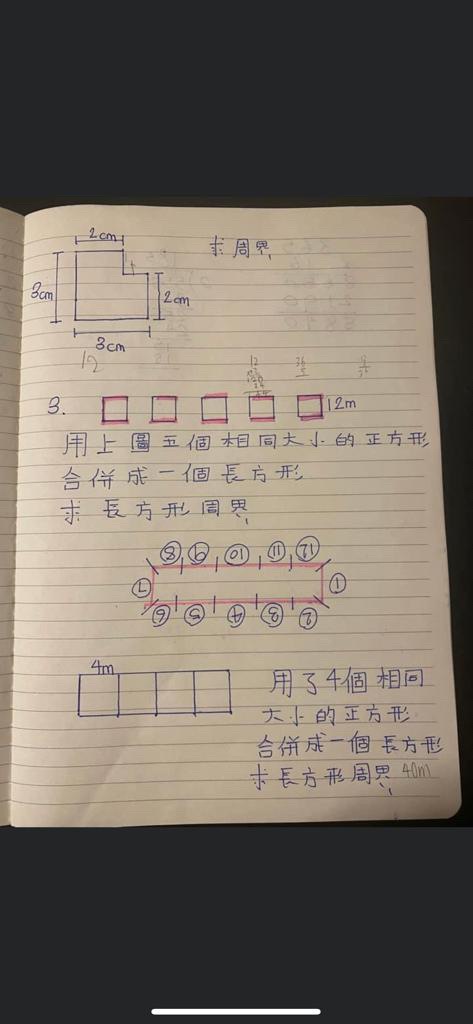 2cm
求周界
3cm
2cm
3cm
12
3.
12m
用上圖五個相同大小的正方形
合併成一個長方形
求長方形周界
⑧ ⑨ ⑩ ⑪ ⑫
⑦ ①
⑥ ⑤ ④ ③ ②
4m
用了4個相同
大小的正方形
合併成一個長方形
求長方形周界 40m